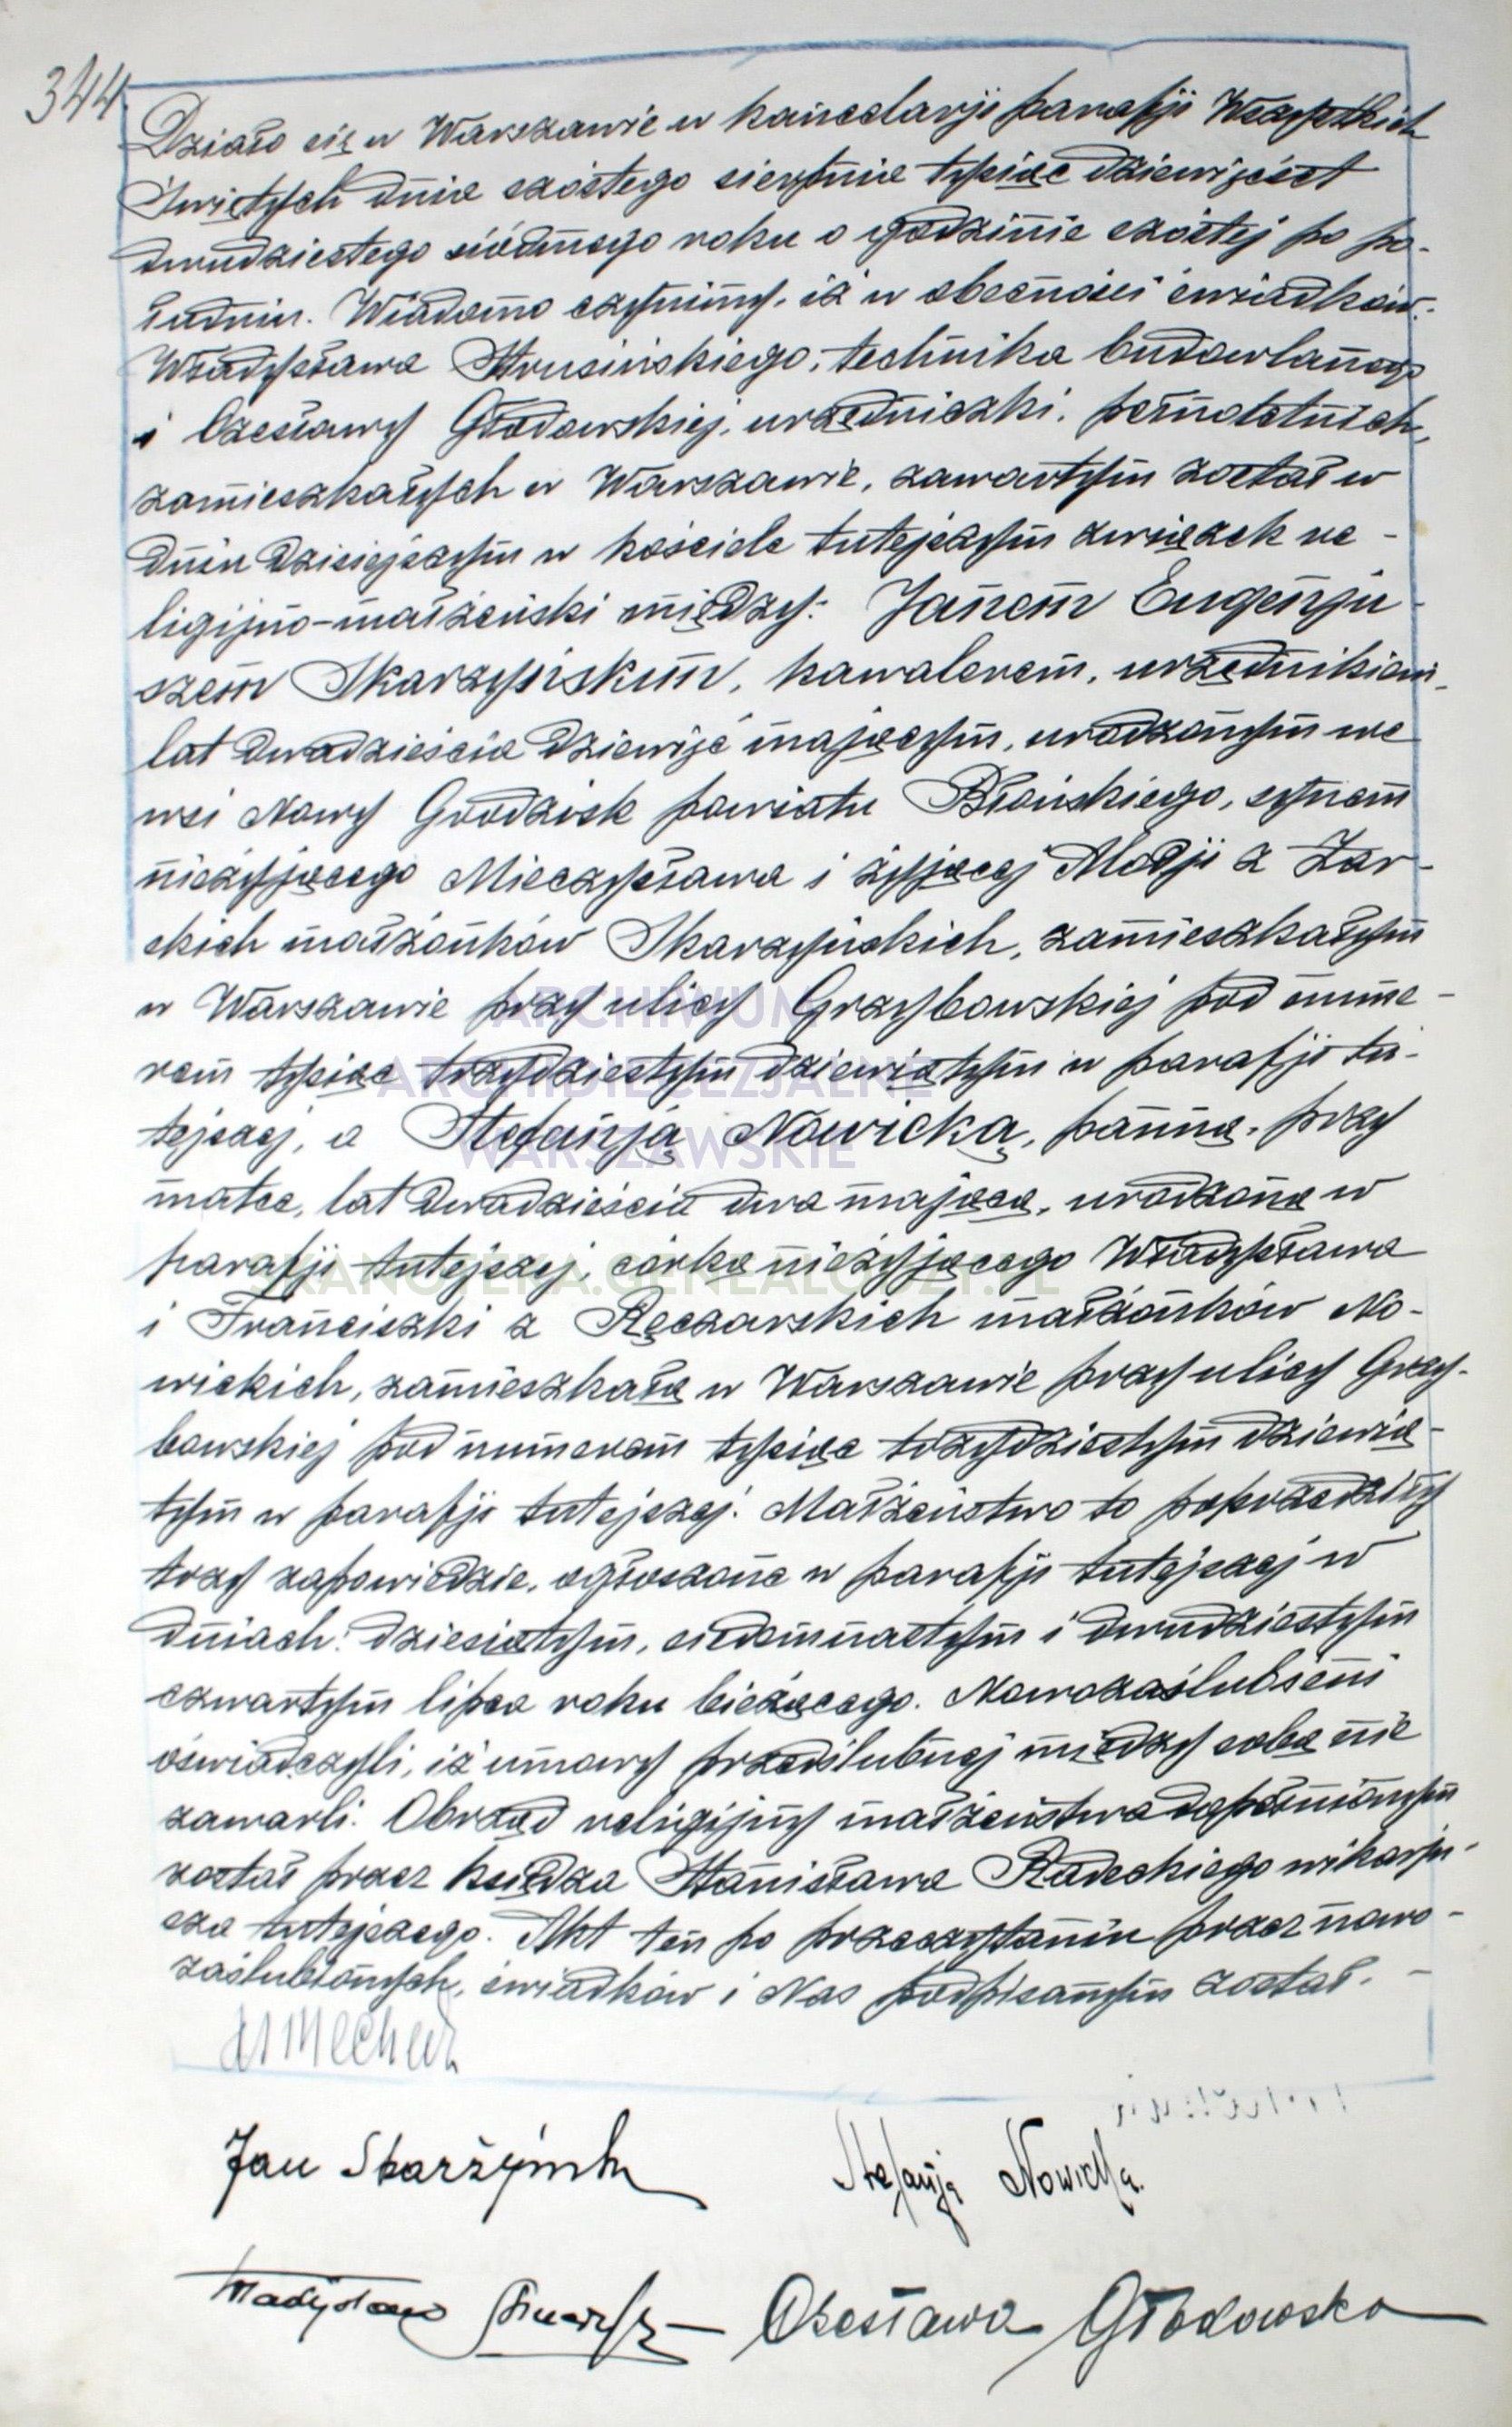 344.
Działo się w Warszawie w kancelarji parafji Wszystkich
Świętych dnia szóstego sierpnia tysiąc dziewięćset
dwudziestego siódmego roku o godzinie szóstej po po-
łudniu. Wiadomo czynimy, iż w obecności świadków:
Władysława Strusińskiego, technika budowlanego
i Czesławy Głodowskiej, urzędniczki, pełnoletnich,
zamieszkałych w Warszawie, zawartym został w
dniu dzisiejszym w kościele tutejszym związek re-
ligijno-małżeński między: Janem Eugenju-
szem Skarzyńskim, kawalerem, urzędnikiem,
lat dwadzieścia dziewięć mającym, urodzonym we
wsi Nowy Grodzisk powiatu Błońskiego, synem
nieżyjącego Mieczysława i żyjącej Modji z Żar-
skich małżonków Skarzyńskich, zamieszkałym
w Warszawie przy ulicy Grzybowskiej pod nume-
rem tysiąc trzydziestym dziewiątym w parafji tu-
tejszej, a Stefanją Nowicką, panną, przy
matce, lat dwadzieścia dwa mającą, urodzoną w
parafji tutejszej, córką nieżyjącego Władysława
i Franciszki z Ręczarskich małżonków No-
wickich, zamieszkałą w Warszawie przy ulicy Grzy-
bowskiej pod numerem tysiąc trzydziestym dziewią-
tym w parafji tutejszej. Małżeństwo to poprzedziły
trzy zapowiedzie, ogłoszone w parafji tutejszej w
dniach: dziesiątym, siedemnastym i dwudziestym
czwartym lipca roku bieżącego. Nowozaślubieni
oświadczyli, iż umowy przedślubnej między sobą nie
zawarli. Obrzęd religijny małżeństwa dopełnionym
został przez księdza Stanisława Radeckiego wikarju-
sza tutejszego. Akt ten po przeczytaniu przez nowo-
zaślubionych, świadków i Nas podpisanym został. -
Jan Skarżyński
Stefanja Nowicka.
Władysław
Czesława Głodowska
ARCHIWUM
ARCHIDIECEZJALNE
WARSZAWSKIE
SKANOTEKA.GENEALODZY.PL